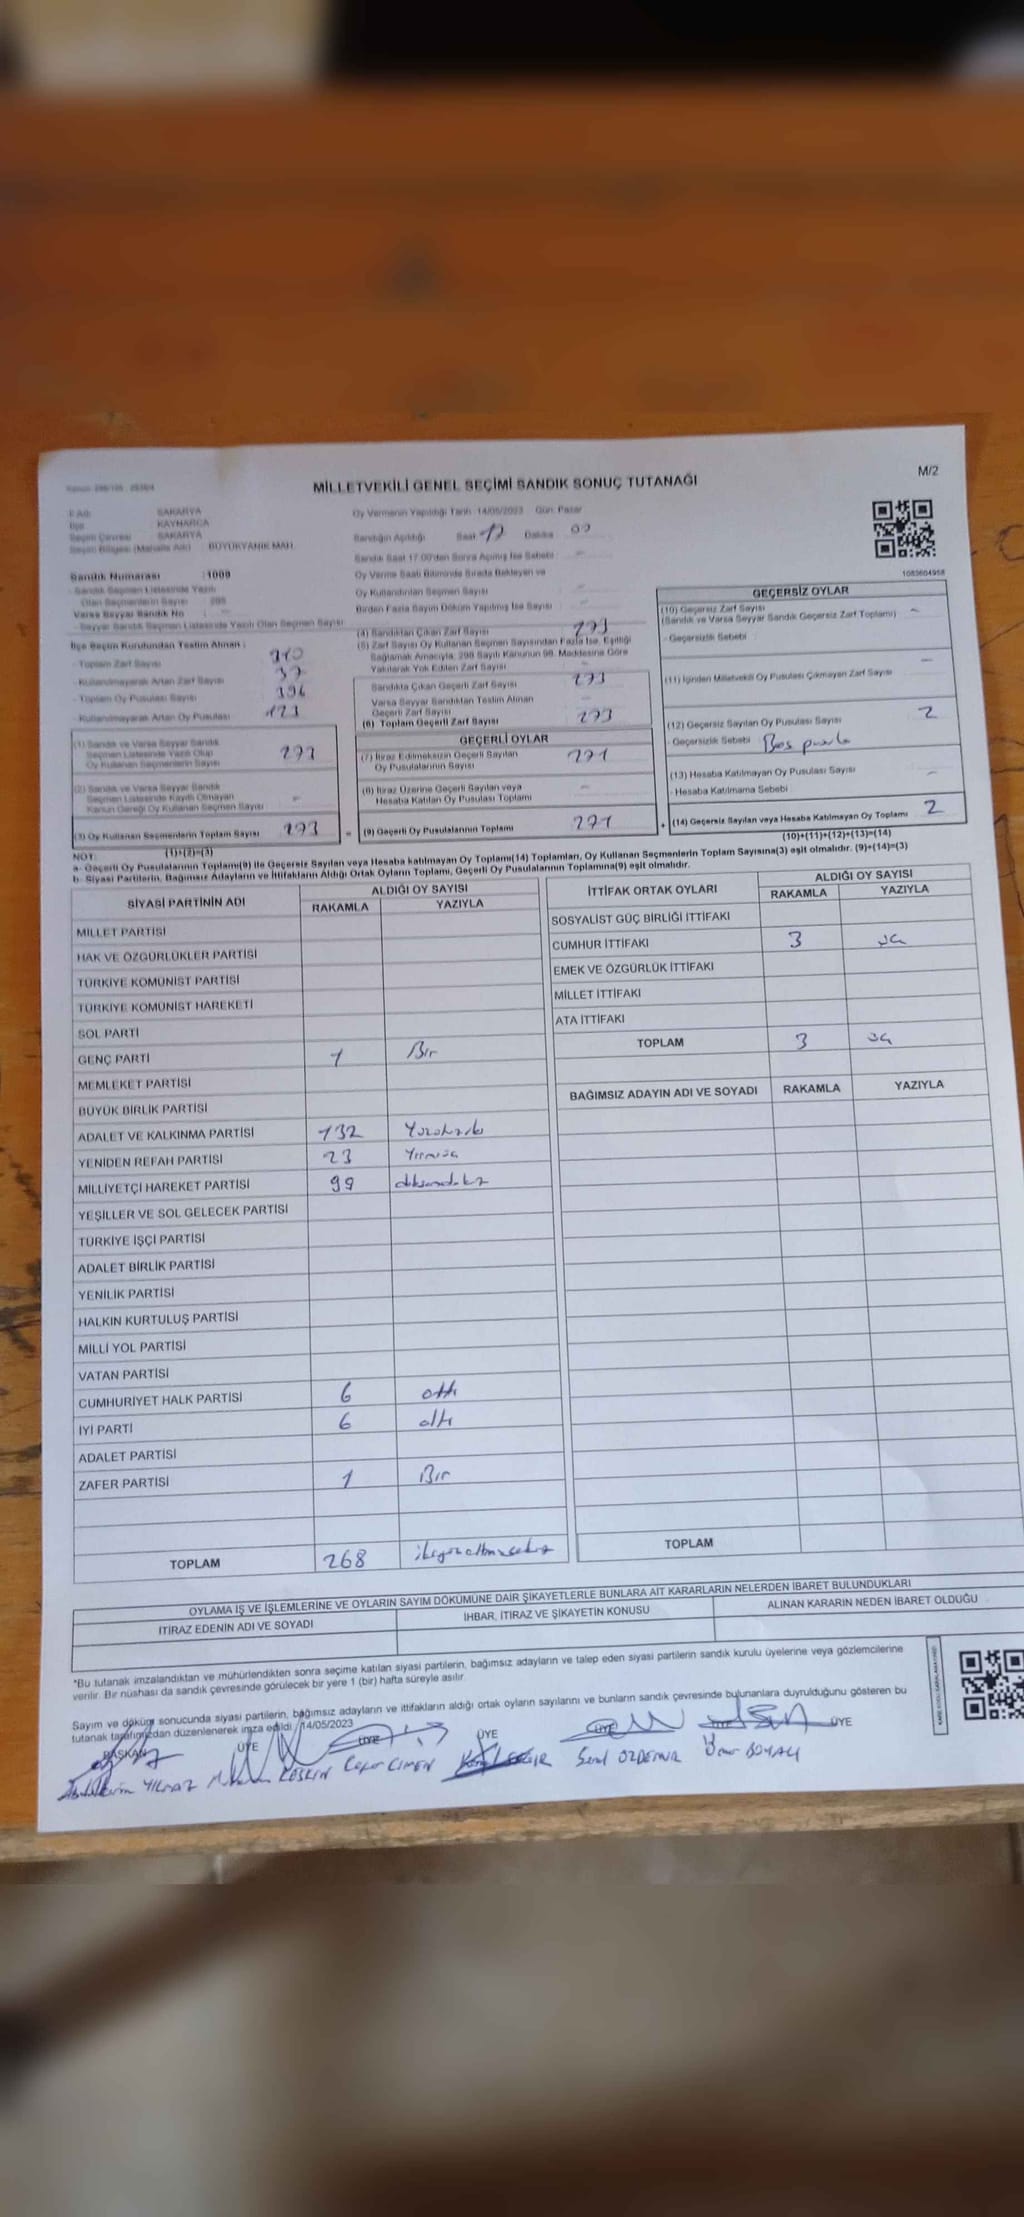 M/2
MİLLETVEKİLİ GENEL SEÇİMİ SANDIK SONUÇ TUTANAĞI
SAKARYA
İlçe KAYNARCA
Seçim Çevresi SAKARYA
Seçim Bölgesi (Mahalle Adı) BÜYÜKYANIK MAH.
Oy Vermenin Yapıldığı Tarih :14/05/2023 Gün: Pazar
Sandığın Açıldığı Saat 17 Dakika 00
Sandık Saat 17:00'den Sonra Açılmış İse Sebebi
Oy Verme Saati Bitiminde Sırada Bekleyen ve
Oy Kullandırılan Seçmen Sayısı
Birden Fazla Sayım Döküm Yapılmış İse Sayısı
1083604958
Sandık Numarası :1009
Sandık Seçmen Listesinde Yazılı
Olan Seçmenlerin Sayısı
Varsa Seyyar Sandık No
Seyyar Sandık Seçmen Listesinde Yazılı Olan Seçmen Sayısı
İlçe Seçim Kurulundan Teslim Alınan :
- Toplam Zarf Sayısı 310
- Kullanılmayarak Artan Zarf Sayısı 37
- Toplam Oy Pusulası Sayısı
- Kullanılmayarak Artan Oy Pusulası
(1) Sandık ve Varsa Seyyar Sandık
Seçmen Listesinde Yazılı Olup
Oy Kullanan Seçmenlerin Sayısı 273
(2) Sandık ve Varsa Seyyar Sandık
Seçmen Listesinde Kayıtlı Olmayan
Kanun Gereği Oy Kullanan Seçmen Sayısı -
(3) Oy Kullanan Seçmenlerin Toplam Sayısı 273
(1)+(2)=(3)
(4) Sandıktan Çıkan Zarf Sayısı 273
(5) Zarf Sayısı Oy Kullanan Seçmen Sayısından Fazla İse, Eşitliği
Sağlamak Amacıyla, 298 Sayılı Kanunun 98. Maddesine Göre
Yakılarak Yok Edilen Zarf Sayısı -
Sandıkta Çıkan Geçerli Zarf Sayısı 273
Varsa Seyyar Sandıktan Teslim Alınan
Geçerli Zarf Sayısı -
(6) Toplam Geçerli Zarf Sayısı 273
GEÇERLİ OYLAR
(7) İtiraz Edilmeksizin Geçerli Sayılan
Oy Pusulalarının Sayısı 271
(8) İtiraz Üzerine Geçerli Sayılan veya
Hesaba Katılan Oy Pusulası Toplamı -
= (9) Geçerli Oy Pusulalarının Toplamı 271
GEÇERSİZ OYLAR
(10) Geçersiz Zarf Sayısı -
(Sandık ve Varsa Seyyar Sandık Geçersiz Zarf Toplamı)
- Geçersizlik Sebebi
(11) İçinden Milletvekili Oy Pusulası Çıkmayan Zarf Sayısı -
(12) Geçersiz Sayılan Oy Pusulası Sayısı 2
- Geçersizlik Sebebi Boş pusula
(13) Hesaba Katılmayan Oy Pusulası Sayısı -
- Hesaba Katılmama Sebebi
+ (14) Geçersiz Sayılan veya Hesaba Katılmayan Oy Toplamı 2
(10)+(11)+(12)+(13)=(14)
NOT:
a- Geçerli Oy Pusulalarının Toplamı(9) ile Geçersiz Sayılan veya Hesaba katılmayan Oy Toplamı(14) Toplamları, Oy Kullanan Seçmenlerin Toplam Sayısına(3) eşit olmalıdır. (9)+(14)=(3)
b- Siyasi Partilerin, Bağımsız Adayların ve İttifakların Aldığı Ortak Oyların Toplamı, Geçerli Oy Pusulalarının Toplamına(9) eşit olmalıdır.
SİYASİ PARTİNİN ADI ALDIĞI OY SAYISI
RAKAMLA YAZIYLA
MİLLET PARTİSİ
HAK VE ÖZGÜRLÜKLER PARTİSİ
TÜRKİYE KOMÜNİST PARTİSİ
TÜRKİYE KOMÜNİST HAREKETİ
SOL PARTİ
GENÇ PARTİ 1 Bir
MEMLEKET PARTİSİ
BÜYÜK BİRLİK PARTİSİ
ADALET VE KALKINMA PARTİSİ 132
YENİDEN REFAH PARTİSİ 23
MİLLİYETÇİ HAREKET PARTİSİ 99
YEŞİLLER VE SOL GELECEK PARTİSİ
TÜRKİYE İŞÇİ PARTİSİ
ADALET BİRLİK PARTİSİ
YENİLİK PARTİSİ
HALKIN KURTULUŞ PARTİSİ
MİLLİ YOL PARTİSİ
VATAN PARTİSİ
CUMHURİYET HALK PARTİSİ 6 altı
İYİ PARTİ 6 altı
ADALET PARTİSİ
ZAFER PARTİSİ 1 Bir
TOPLAM 268 ikiyüzaltmışsekiz
İTTİFAK ORTAK OYLARI ALDIĞI OY SAYISI
RAKAMLA YAZIYLA
SOSYALİST GÜÇ BİRLİĞİ İTTİFAKI
CUMHUR İTTİFAKI 3 üç
EMEK VE ÖZGÜRLÜK İTTİFAKI
MİLLET İTTİFAKI
ATA İTTİFAKI
TOPLAM 3 üç
BAĞIMSIZ ADAYIN ADI VE SOYADI RAKAMLA YAZIYLA
TOPLAM
OYLAMA İŞ VE İŞLEMLERİNE VE OYLARIN SAYIM DÖKÜMÜNE DAİR ŞİKAYETLERLE BUNLARA AİT KARARLARIN NELERDEN İBARET BULUNDUKLARI
İTİRAZ EDENİN ADI VE SOYADI İHBAR, İTİRAZ VE ŞİKAYETİN KONUSU ALINAN KARARIN NEDEN İBARET OLDUĞU
*Bu tutanak imzalandıktan ve mühürlendikten sonra seçime katılan siyasi partilerin, bağımsız adayların ve talep eden siyasi partilerin sandık kurulu üyelerine veya gözlemcilerine
verilir. Bir nüshası da sandık çevresinde görülecek bir yere 1 (bir) hafta süreyle asılır.
Sayım ve döküm sonucunda siyasi partilerin, bağımsız adayların ve ittifakların aldığı ortak oyların sayılarını ve bunların sandık çevresinde bulunanlara duyrulduğunu gösteren bu
tutanak tarafımızdan düzenlenerek imza edildi. 14/05/2023
BAŞKAN ÜYE ÜYE ÜYE ÜYE ÜYE
YILMAZ KESKİN Cafer ÇİMEN ÖZDEMİR Ömer BOYALI